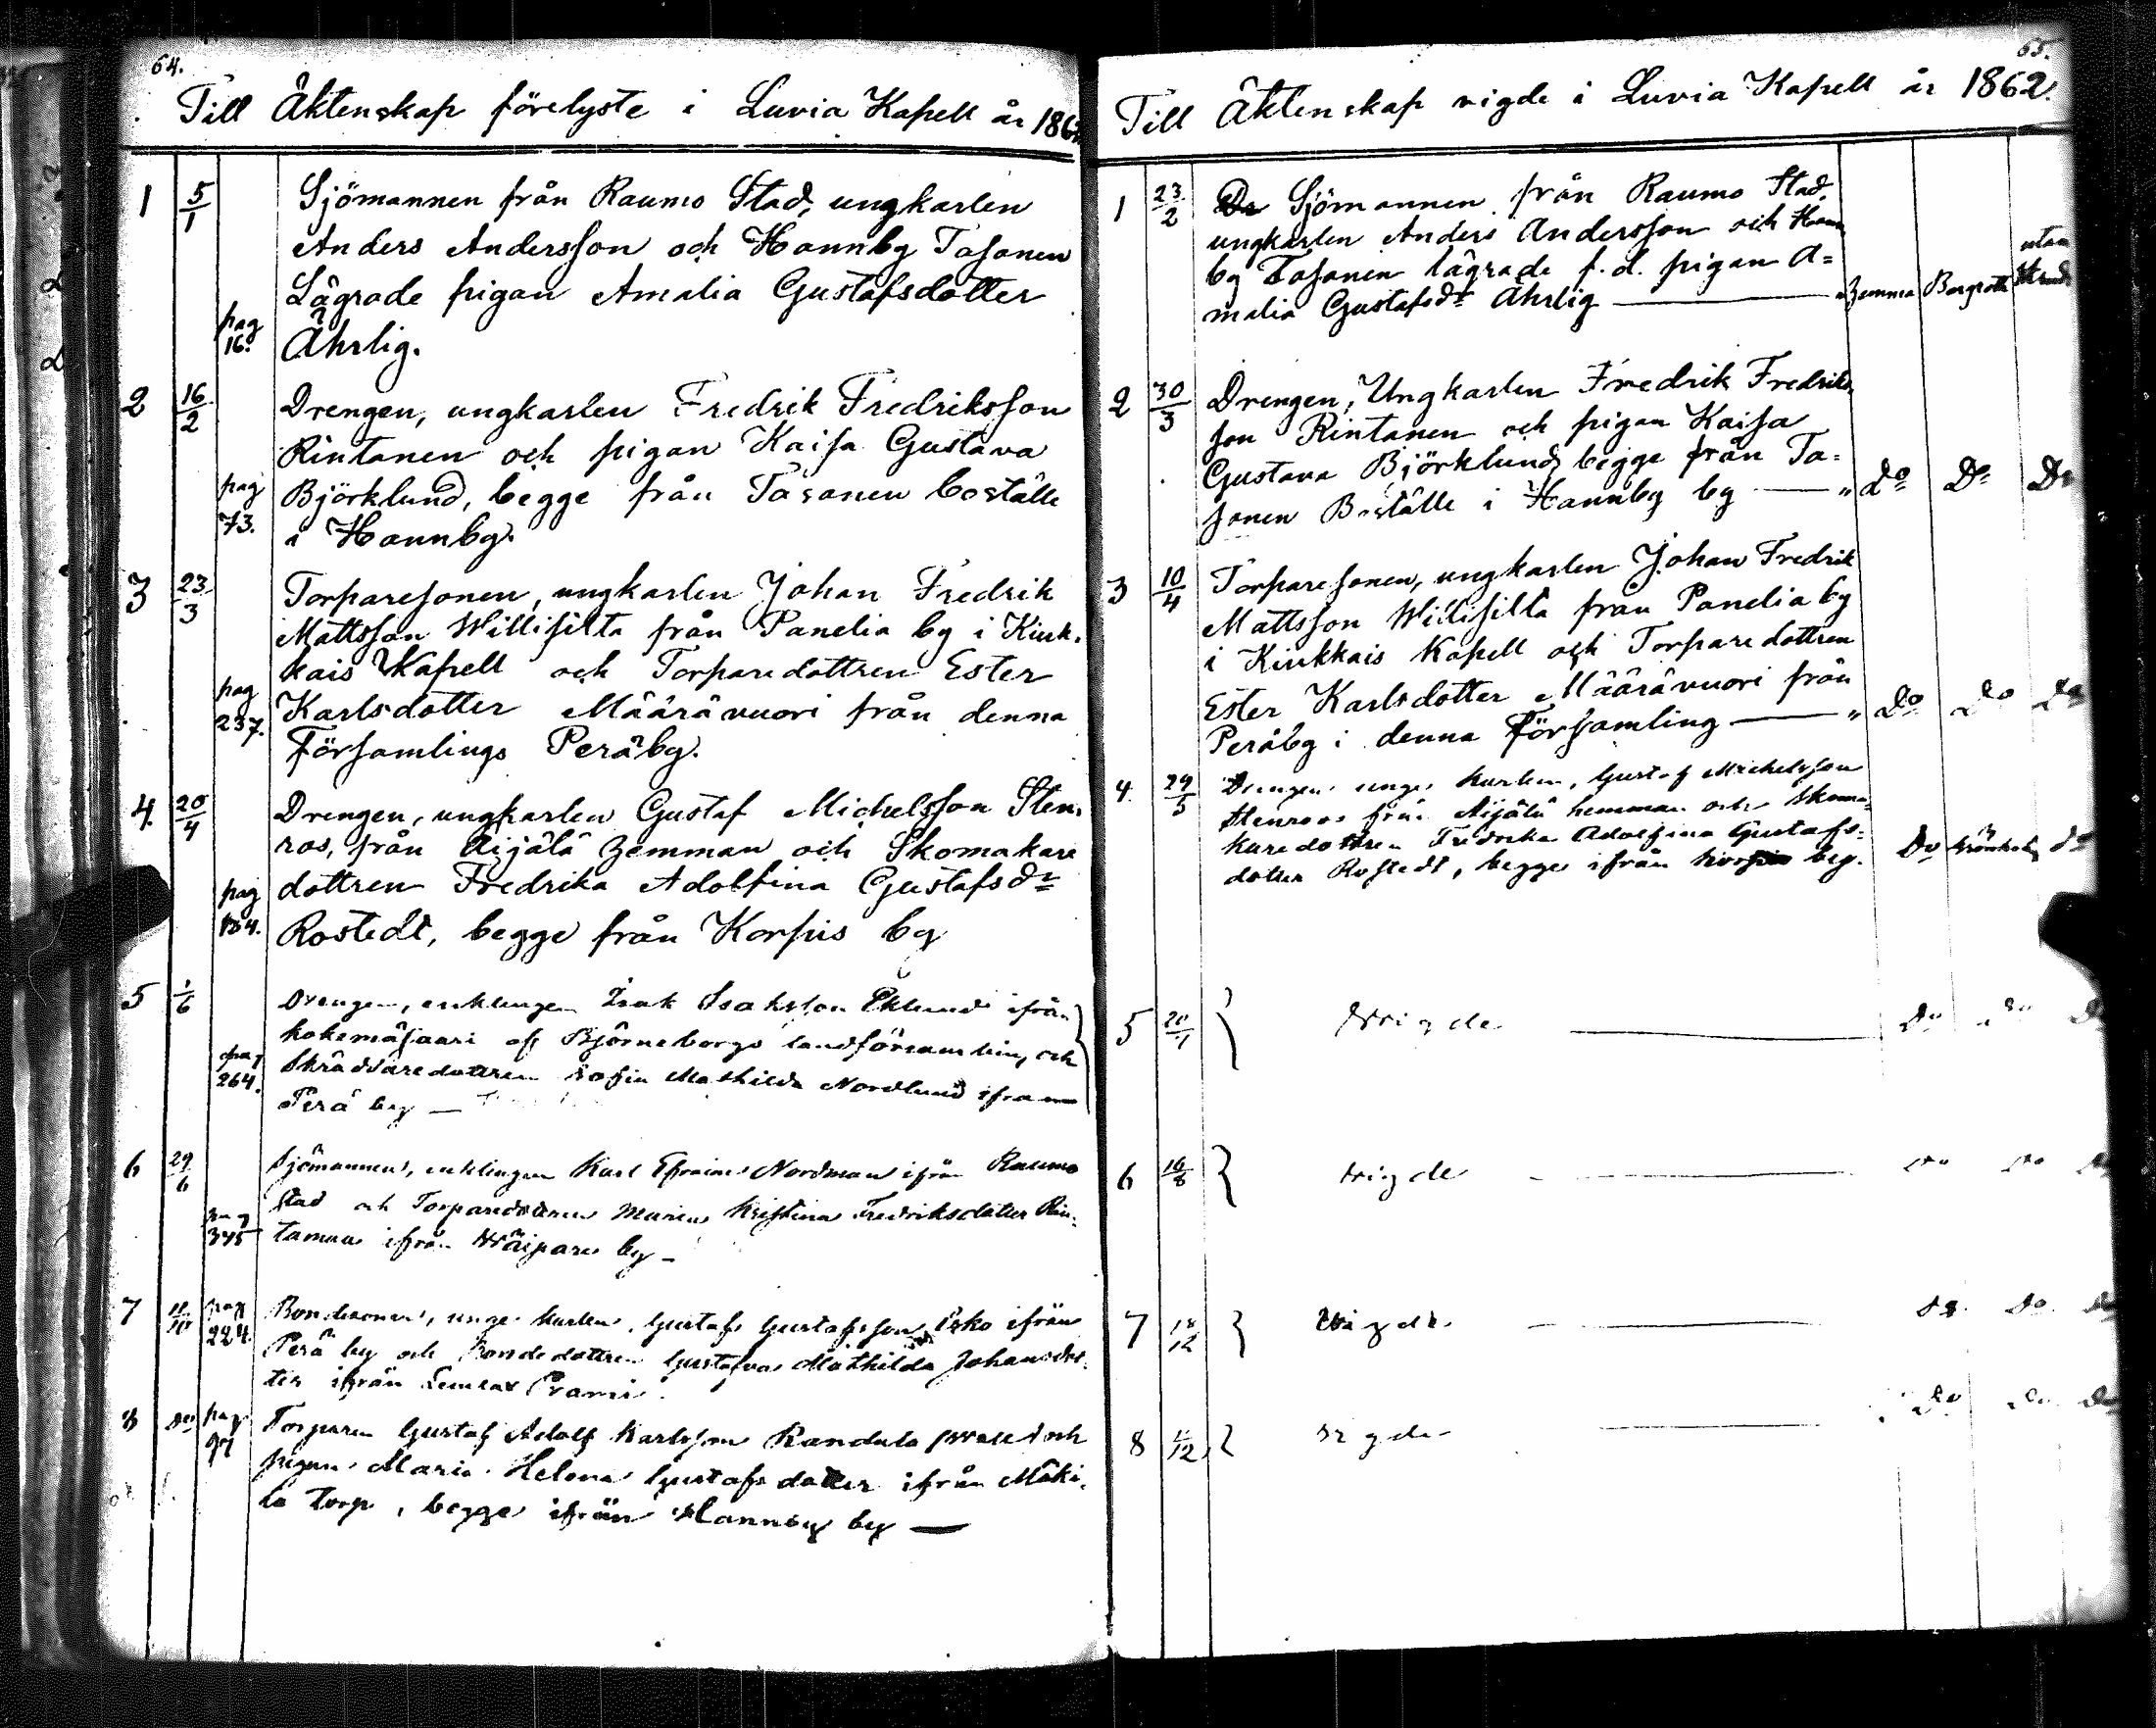 64.
Till Äktenskap förelyste i Luvia Kapell år 1862
1 5/1 Sjömannen från Raumo Stad, ungkarlen
Anders Andersson och Hannby Tasanen
Lägrade pigan Amalia Gustafsdotter
pag 16. Ährlig.
2 16/2 Drengen, ungkarlen Fredrik Fredriksson
Rintanen och pigan Kaisa Gustava
pag 73. Björklund, begge från Tasanen boställe
i Hannby.
3 23/3 Torparesonen, ungkarlen Johan Fredrik
Mattsson Willisilta från Panelia by i Kiuk-
kais Kapell och Torparedottren Ester
pag 237. Karlsdotter Määrävuori från denna
Församlings Peräby.
4. 20/4 Drengen, ungkarlen Gustaf Michelsson Sten-
ros, från Äijälä hemman och Skomakare
pag 184. dottren Fredrika Adolfina Gustafsdr
Rostedt, begge från Korpis by
5 1/6 Drengen, enklingen Isak Isaksson Eklund ifrån
kokemäsaari af Björneborgs landsförsamling och
pag 264. Skräddaredottren Sofia Mathilda Nordlund ifrån
Perä by —
6 29/6 Sjömannen, enklingen Karl Efraim Nordman ifrån Raumo
stad och Torparedottren Maria Kristina Fredriksdotter Rin-
pag 345 tanen ifrån by —
7 pag 224. Bondesonen, unge karlen, Gustaf Gustafsson Isko ifrån
Perä by och Bondedottren Gustafva Mathilda Johansdot-
ter ifrån
8 Do pag 97 Torparen Gustaf Adolf Karlsson Randala och
pigan Maria Helena Gustafsdotter ifrån Mäki-
la torp, begge ifrån Hannby by —
65.
Till Äktenskap vigde i Luvia Kapell år 1862.
1 23/2 Sjömannen från Raumo Stad,
ungkarlen Anders Andersson och Hann
by Tasanen lägrade f.d. pigan A=
malia Gustafsdr Ährlig — hemma Bergroth utan
2 30/3 Drengen, Ungkarlen Fredrik Fredriks-
son Rintanen och pigan Kaisa
Gustava Björklund, begge från Ta=
sanen Boställe i Hannby by — " Do Do Do
3 10/4 Torparesonen, ungkarlen Johan Fredrik
Mattsson Willisilta från Panelia by
i Kiukkais Kapell och Torparedottren
Ester Karlsdotter Määrävuori från
Peräby i denna Församling — " Do Do Do
4. 29/5 Drengen unge karlen, Gustaf Michelsson
Stenroos från Äijälä hemman och Skoma-
karedottren Fredrika Adolfina Gustafs=
dotter Rostedt, begge ifrån Korpis by. Do do
5 } Wigde — Do Do Do
6 16/8 } Wigde — Do Do
7 18/12 } Wigde — Do. Do.
8 } Wigde — Do Do Do